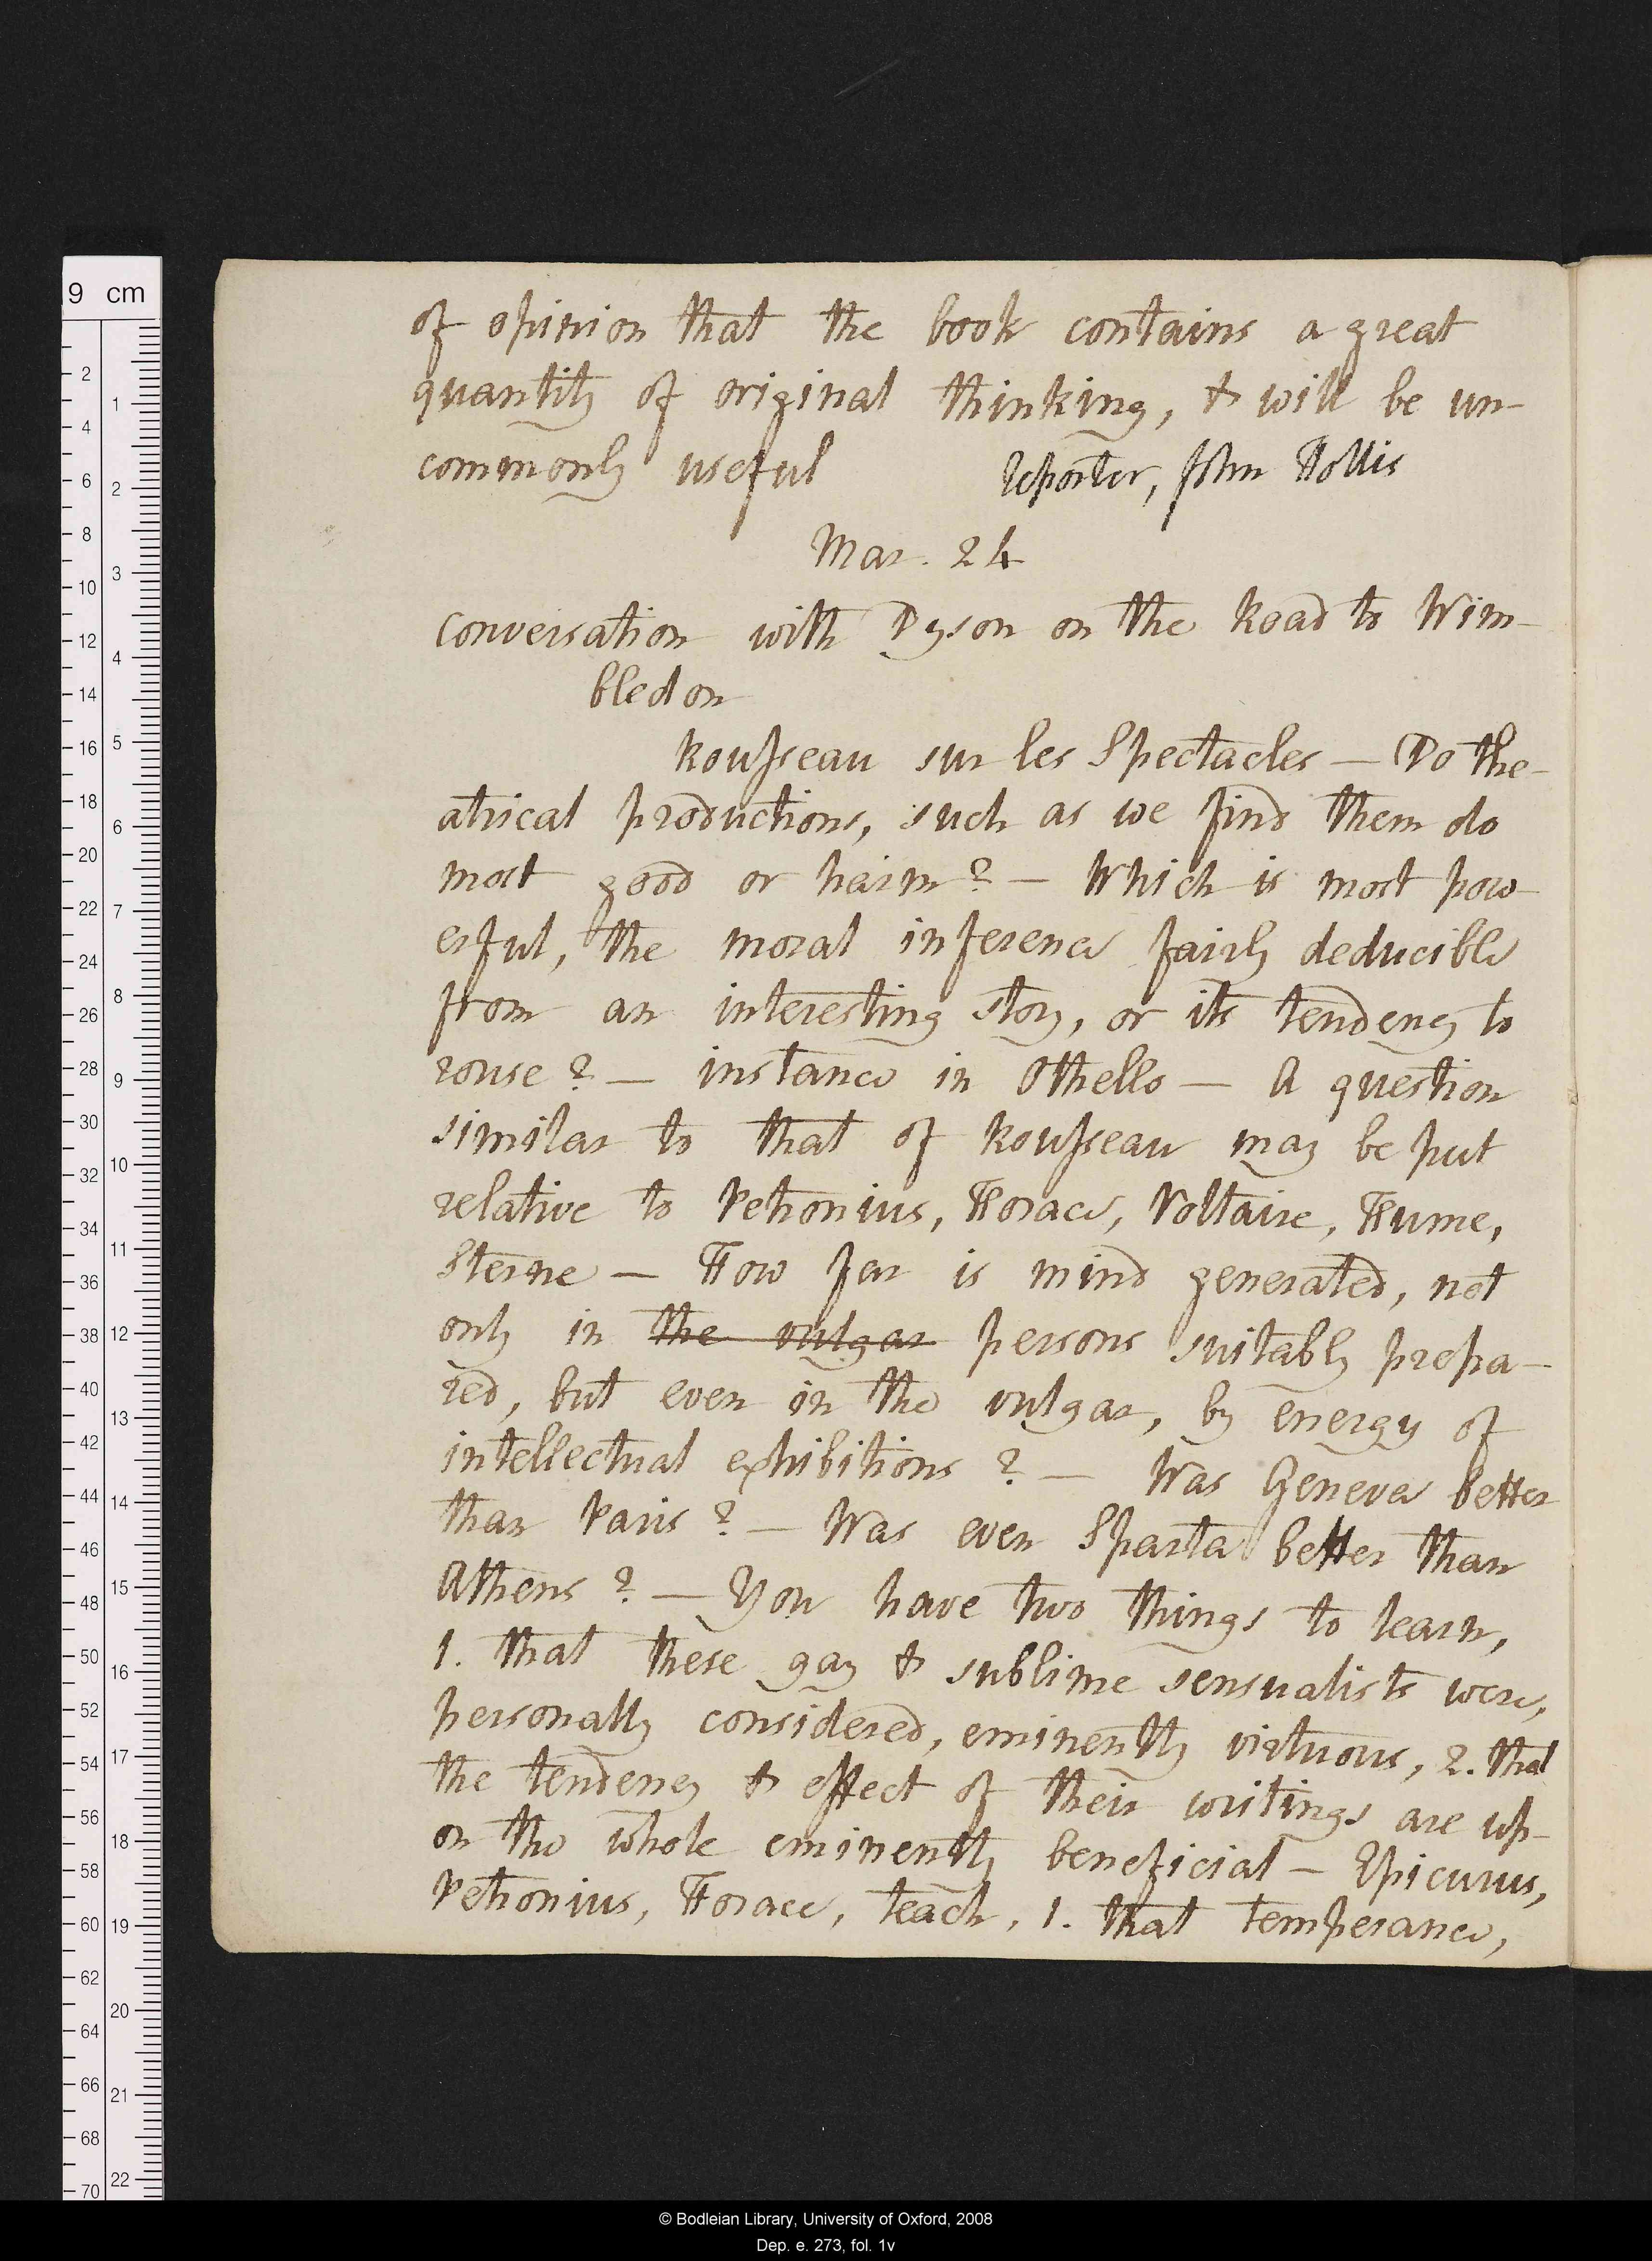 of opinion that the book contains a great
quantity of original thinking, & will be un-
commonly useful reporter, John Hollis
Mar. 24
conversation with Dyson on the Road to Wim-
bledon
Rousseau sur les Spectacles — Do the-
atrical productions, such as we find them do
most good or harm? — Which is most pow-
erful, the moral inference fairly deducible
from an interesting story, or its tendency to
rouse? — instance in Othello — A question
similar to that of Rousseau may be put
relative to Petronius, Horace, Voltaire, Hume,
Sterne — How far is mind generated, not
only in the vulgar persons suitably prepa-
red, but even in the vulgar, by energy of
intellectual exhibitions? — Was Geneva better
than Paris? — Was even Sparta better than
Athens? — You have two things to learn,
1. that these gay & sublime sensualists were,
personally considered, eminently virtuous, 2. that
the tendency & effect of their writings are up-
on the whole eminently beneficial — Epicurus,
Petronius, Horace, teach, 1. that temperance,
9 cm
2
4
6
8
10
12
14
16
18
20
22
24
26
28
30
32
34
36
38
40
42
44
46
48
50
52
54
56
58
60
62
64
66
68
70
1
2
3
4
5
6
7
8
9
10
11
12
13
14
15
16
17
18
19
20
21
22
© Bodleian Library, University of Oxford, 2008
Dep. e. 273, fol. 1v